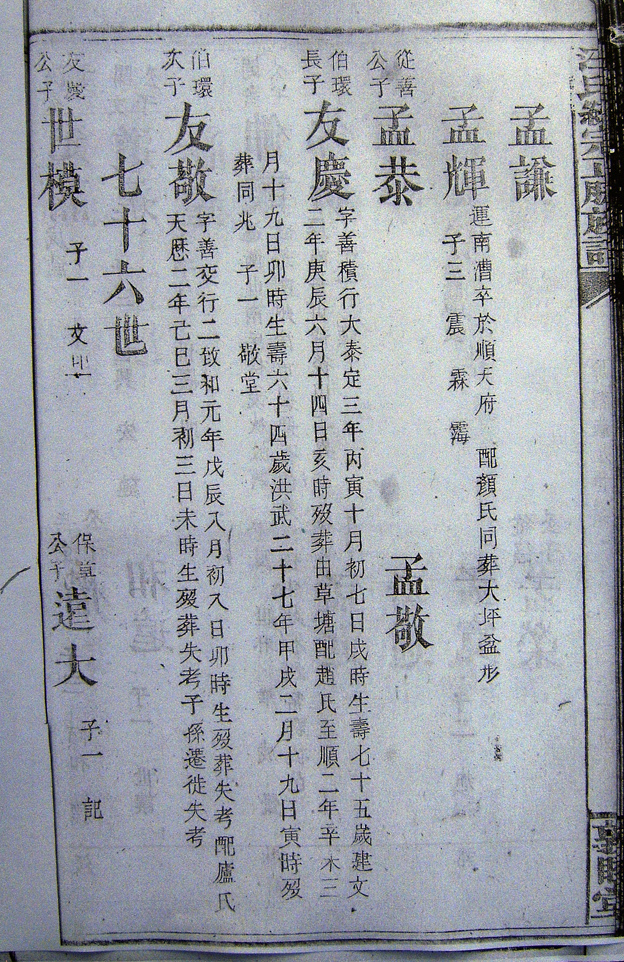 孟謙
孟輝
運南漕卒於順天府 配顏氏同葬大坪盆形
子三 震 霖 霈
從善公子 孟恭 孟敬
伯環長子 友慶
字善積行大泰定三年丙寅十月初七日戌時生壽七十五歲建文
二年庚辰六月十四日亥時歿葬由草塘配趙氏至順二年辛未三
月十九日卯時生壽六十四歲洪武二十七年甲戌二月十九日寅時歿
葬同兆 子一 敬堂
伯環次子 友敬
字善交行二致和元年戊辰八月初八日卯時生歿葬失考配盧氏
天曆二年己巳三月初三日未時生歿葬失考子孫遷徙失考
七十六世
友慶公子 世模
子一
公子 遠大
子一 記